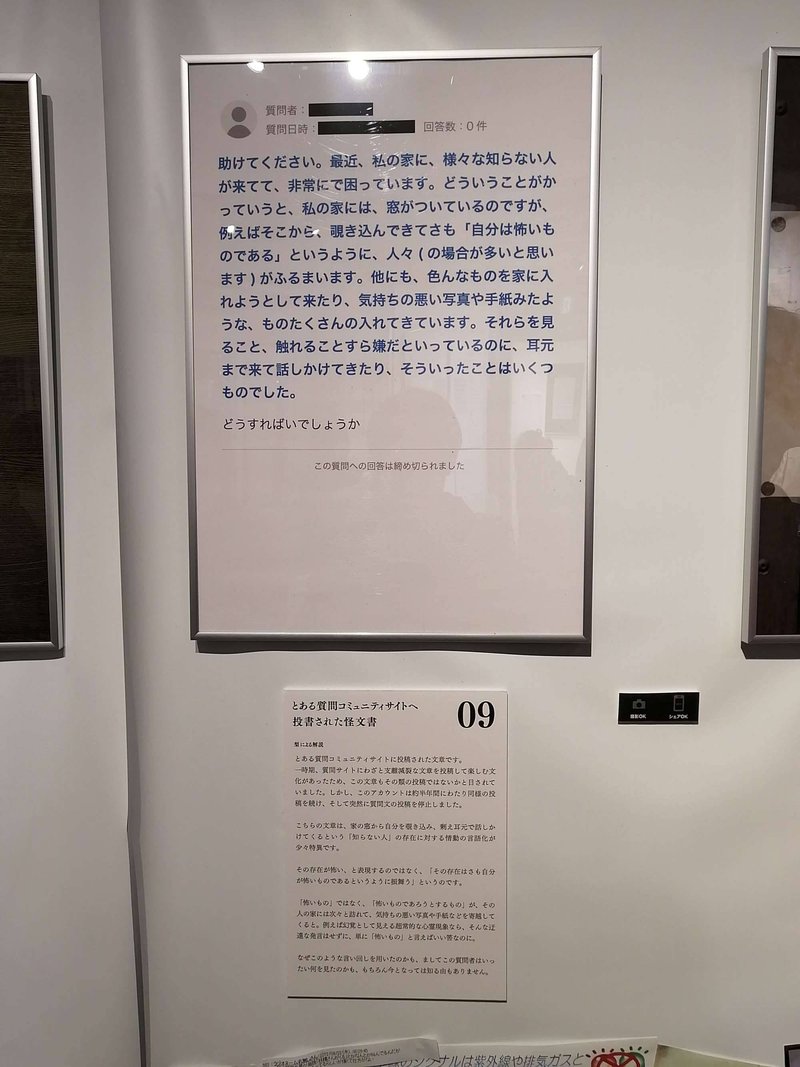 質問者：
質問日時：
回答数：0 件
助けてください。最近、私の家に、様々な知らない人
が来てて、非常にで困っています。どういうことがか
っていうと、私の家には、窓がついているのですが、
例えばそこから、覗き込んできてさも「自分は怖いも
のである」というように、人々 ( の場合が多いと思い
ます ) がふるまいます。他にも、色んなものを家に入
れようとして来たり、気持ちの悪い写真や手紙みたよ
うな、ものたくさんの入れてきています。それらを見
ること、触れることすら嫌だといっているのに、耳元
まで来て話しかけてきたり、そういったことはいくつ
ものでした。
どうすればいでしょうか
この質問への回答は締め切られました
とある質問コミュニティサイトへ
投書された怪文書
09
梨による解説
とある質問コミュニティサイトに投稿された文章です。
一時期、質問サイトにわざと支離滅裂な文章を投稿して楽しむ文
化があったため、この文章もその類の投稿ではないかと目されて
いました。しかし、このアカウントは約半年間にわたり同様の投
稿を続け、そして突然に質問文の投稿を停止しました。
こちらの文章は、家の窓から自分を覗き込み、剰え耳元で話しか
けてくるという「知らない人」の存在に対する情動の言語化が
少々特異です。
その存在が怖い、と表現するのではなく、「その存在はさも自分
が怖いものであるというように振舞う」というのです。
「怖いもの」ではなく、「怖いものであろうとするもの」が、その
人の家には次々と訪れて、気持ちの悪い写真や手紙などを寄越して
くると。例えば幻覚として見える超常的な心霊現象なら、そんな迂
遠な発言はせずに、単に「怖いもの」と言えばいい筈なのに。
なぜこのような言い回しを用いたのかも、ましてこの質問者はいっ
たい何を見たのかも、もちろん今となっては知る由もありません。
撮影OK
シェアOK
シグナルは紫外線や排気ガスと